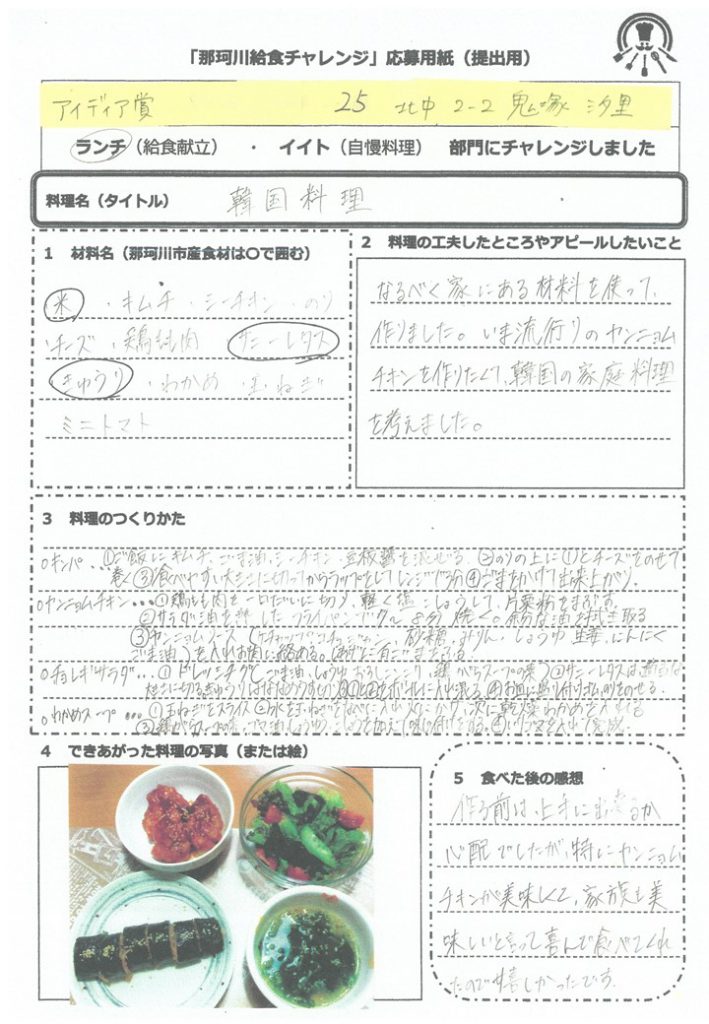 「那珂川給食チャレンジ」応募用紙（提出用）
アイディア賞 25 北中 2-2 鬼塚 汐里
ランチ（給食献立） ・ イイト（自慢料理） 部門にチャレンジしました
料理名（タイトル） 韓国料理
1 材料名（那珂川市産食材は〇で囲む）
米 ・キムチ ・シーチキン ・のり
・チーズ ・鶏もも肉 サニーレタス
・きゅうり ・わかめ ・玉ねぎ
ミニトマト
2 料理の工夫したところやアピールしたいこと
なるべく家にある材料を使って、
作りました。いま流行りのヤンニョム
チキンを作りたくて、韓国の家庭料理
を考えました。
3 料理のつくりかた
○キンパ…①ご飯にキムチ、ごま油、シーチキン、豆板醤を混ぜる ②のりの上に①とチーズをのせて
巻く ③食べやすい大きさに切ってからラップをしてレンジで ④ごまをかけて出来上がり。
○ヤンニョムチキン…①鶏もも肉を一口だいに切り、軽く塩こしょうして、片栗粉をまぶす。
②サラダ油を熱したフライパンで 焼く。余分な油を拭き取る
③ヤンニョムソース（ケチャップ、コチュジャン、砂糖、みりん、しょうゆ、生姜、にんにく
ごま油）を入れお肉に絡める。
○チョレギサラダ…①ドレッシング ②サニーレタスは
○わかめスープ…①玉ねぎをスライス ②水を 火にかけ、次に乾燥わかめを入れる
入れて完成
4 できあがった料理の写真（または絵）
5 食べた後の感想
作る前は、上手に出来るか
心配でしたが、特にヤンニョム
チキンが美味しくて、家族も美
味しいと言って喜んで食べてくれ
たので嬉しかったです。